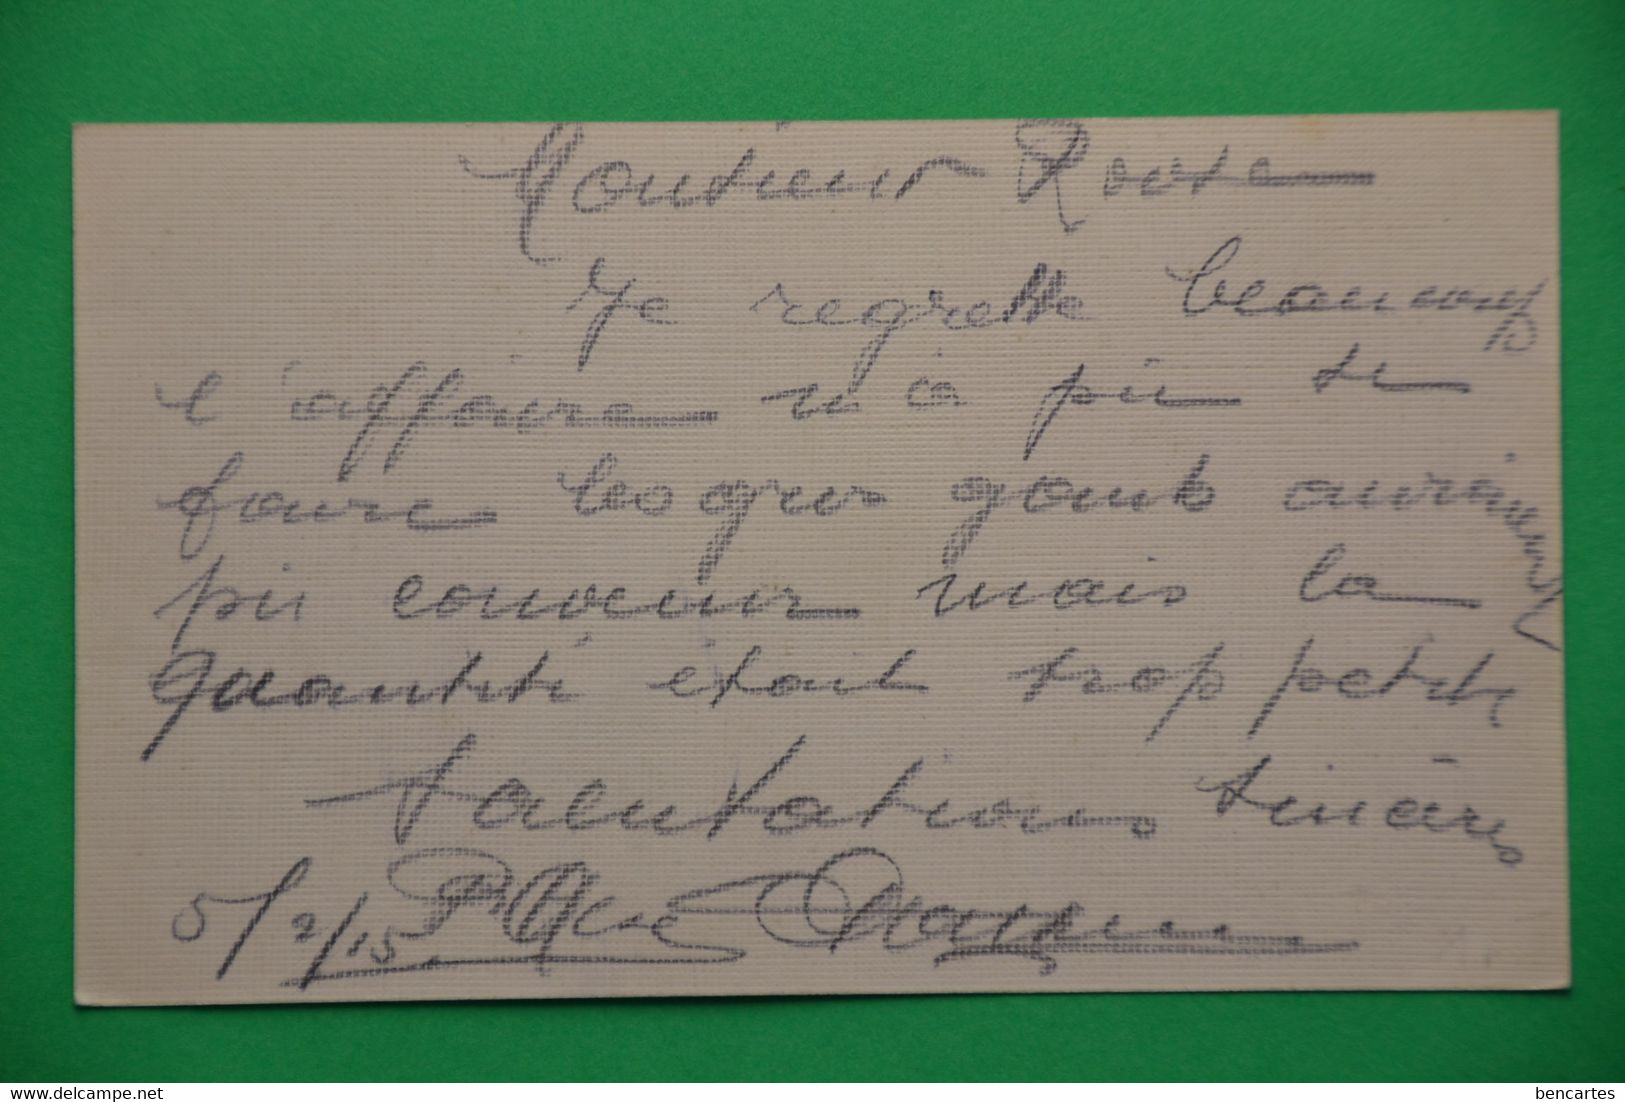 Monsieur
Je regrette beaucoup
l'affaire n'a pu se
faire les gris gants auraient
pu convenir mais la
quantité était trop petite
salutations sincères
5/2/15
www.delcampe.net
bencartes